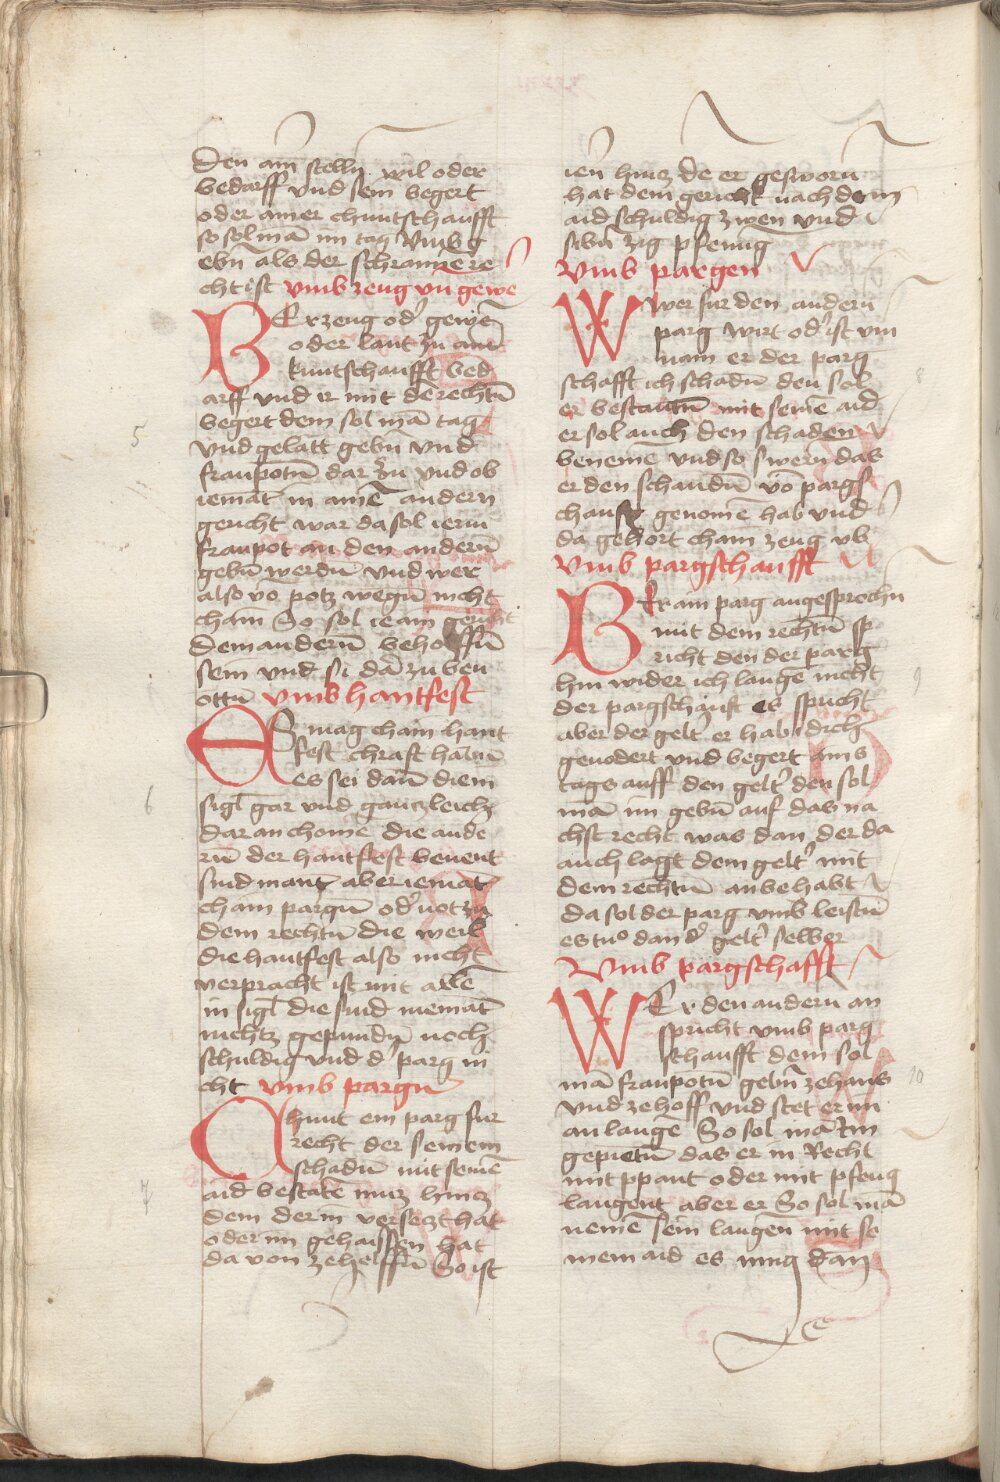 den am stelln̄ wil oder
bedarff vnd sein begert
oder ainer chuntschaufft
so sol mā im tag vmb g
ebn̄ als der schranne re
cht ist vmb zeug vn̄ gewe
Er zeug od' gewe
oder laut zu ain
kuntschaufft bed
arff vnd ir mit dē rechtn̄
begert dem sol mā tag
vnd gelatt gebn̄ vnd
fraupotn̄ dar zu vnd ob
iemāt in ainē andern
gericht war da sol ierm
fraupot an den andern̄
gebn̄ werdn̄ vnd wer
also vō potz wegn̄ nicht
cham So sol ie am gericht
dem andern̄ beholffn̄
sein vnd si dā zu ben
ottn̄ vmb hantfest
ES mag cham hant
fest chraft habn̄
es sei dan̄ diem
sigl gar vnd gantzleich
dar an chome die ande
rn̄ der hantfest benent
sind mant aber iemāt
cham pargn̄ od' notzu
dem rechtn̄ die weil
die hantfest also nicht
verpracht ist mit allē
in sigl die sind niemāt
nichtz gepundn̄ noch
schuldig vnd d' parg ni
cht vmb pargn̄
Chunt ein parg fur
recht der seinem
schadn̄ mit seinē
aid bestatē muz hincz
dem der in versetzt hat
oder im gehaissen hat
da von zehelffn̄ So ist
ien hincz de er gesworn̄
hat dem gericht nach dem
aid schuldig zwen vnd
sibn̄ zig pfennig
vmb pargen
Wwer fur den andern̄
parg wirt od' ist vm
nam er der parg
schafft ich schadn̄ den sol
er bestattn̄ mit seinē aid
er sol auch den schaden
beneme vnd so swern das
er den schaudn̄ vō pargs
chauft genomē hab vnd
da gehort cham zeug vb
vmb pargschaufft
BEr am parg angesprochn̄
mit dem rechtn̄ sp
richt den der parg
hin wider ich laugē nicht
der pargschauft es spricht
aber der gelt' er hab dich
genodert vnd begert ains
tags auff den gelt' den sol
mā im gebn̄ auf das na
chst recht was dan der da
auch lagt dem gelt' mit
dem rechtn̄ anbehabt
da sol der parg vmb leistn̄
es tuͦ dan d' gelt' selber
Vmb pargschafft
WEr den andern an
spricht vmb parg
schaufft dem sol
mā fraupotn̄ gebn̄ zehaus
vnd zehoff vnd stet er im
an lauge So sol mā im
gepietn̄ das er in Recht
mit ppant oder mit pfenig
laugent aber er So sol mā
nemē sein laugen̄ mit se
inem aid es mug dan